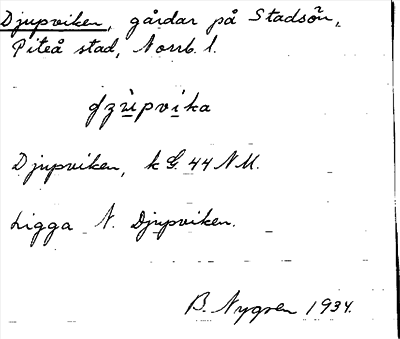 Djupviken, gårdar på Stadsön,
Piteå stad, Norrb. l.
Djupviken, k G. 44 NU.
Ligga N. Djupviken.
B. Nygren 1934.